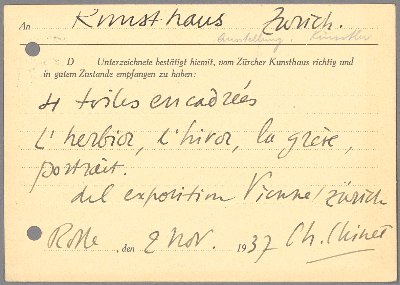 An Kunsthaus Zürich.
Ausstellung: Künstler
D Unterzeichnete bestätigt hiemit, vom Zürcher Kunsthaus richtig und
in gutem Zustande empfangen zu haben:
4 toiles encadrées
L'herbior, L'hivor, la grève,
portrait.
del exposition Vienne/Zürich
Rolle, den 2 Nov. 1937 Ch. Chinet